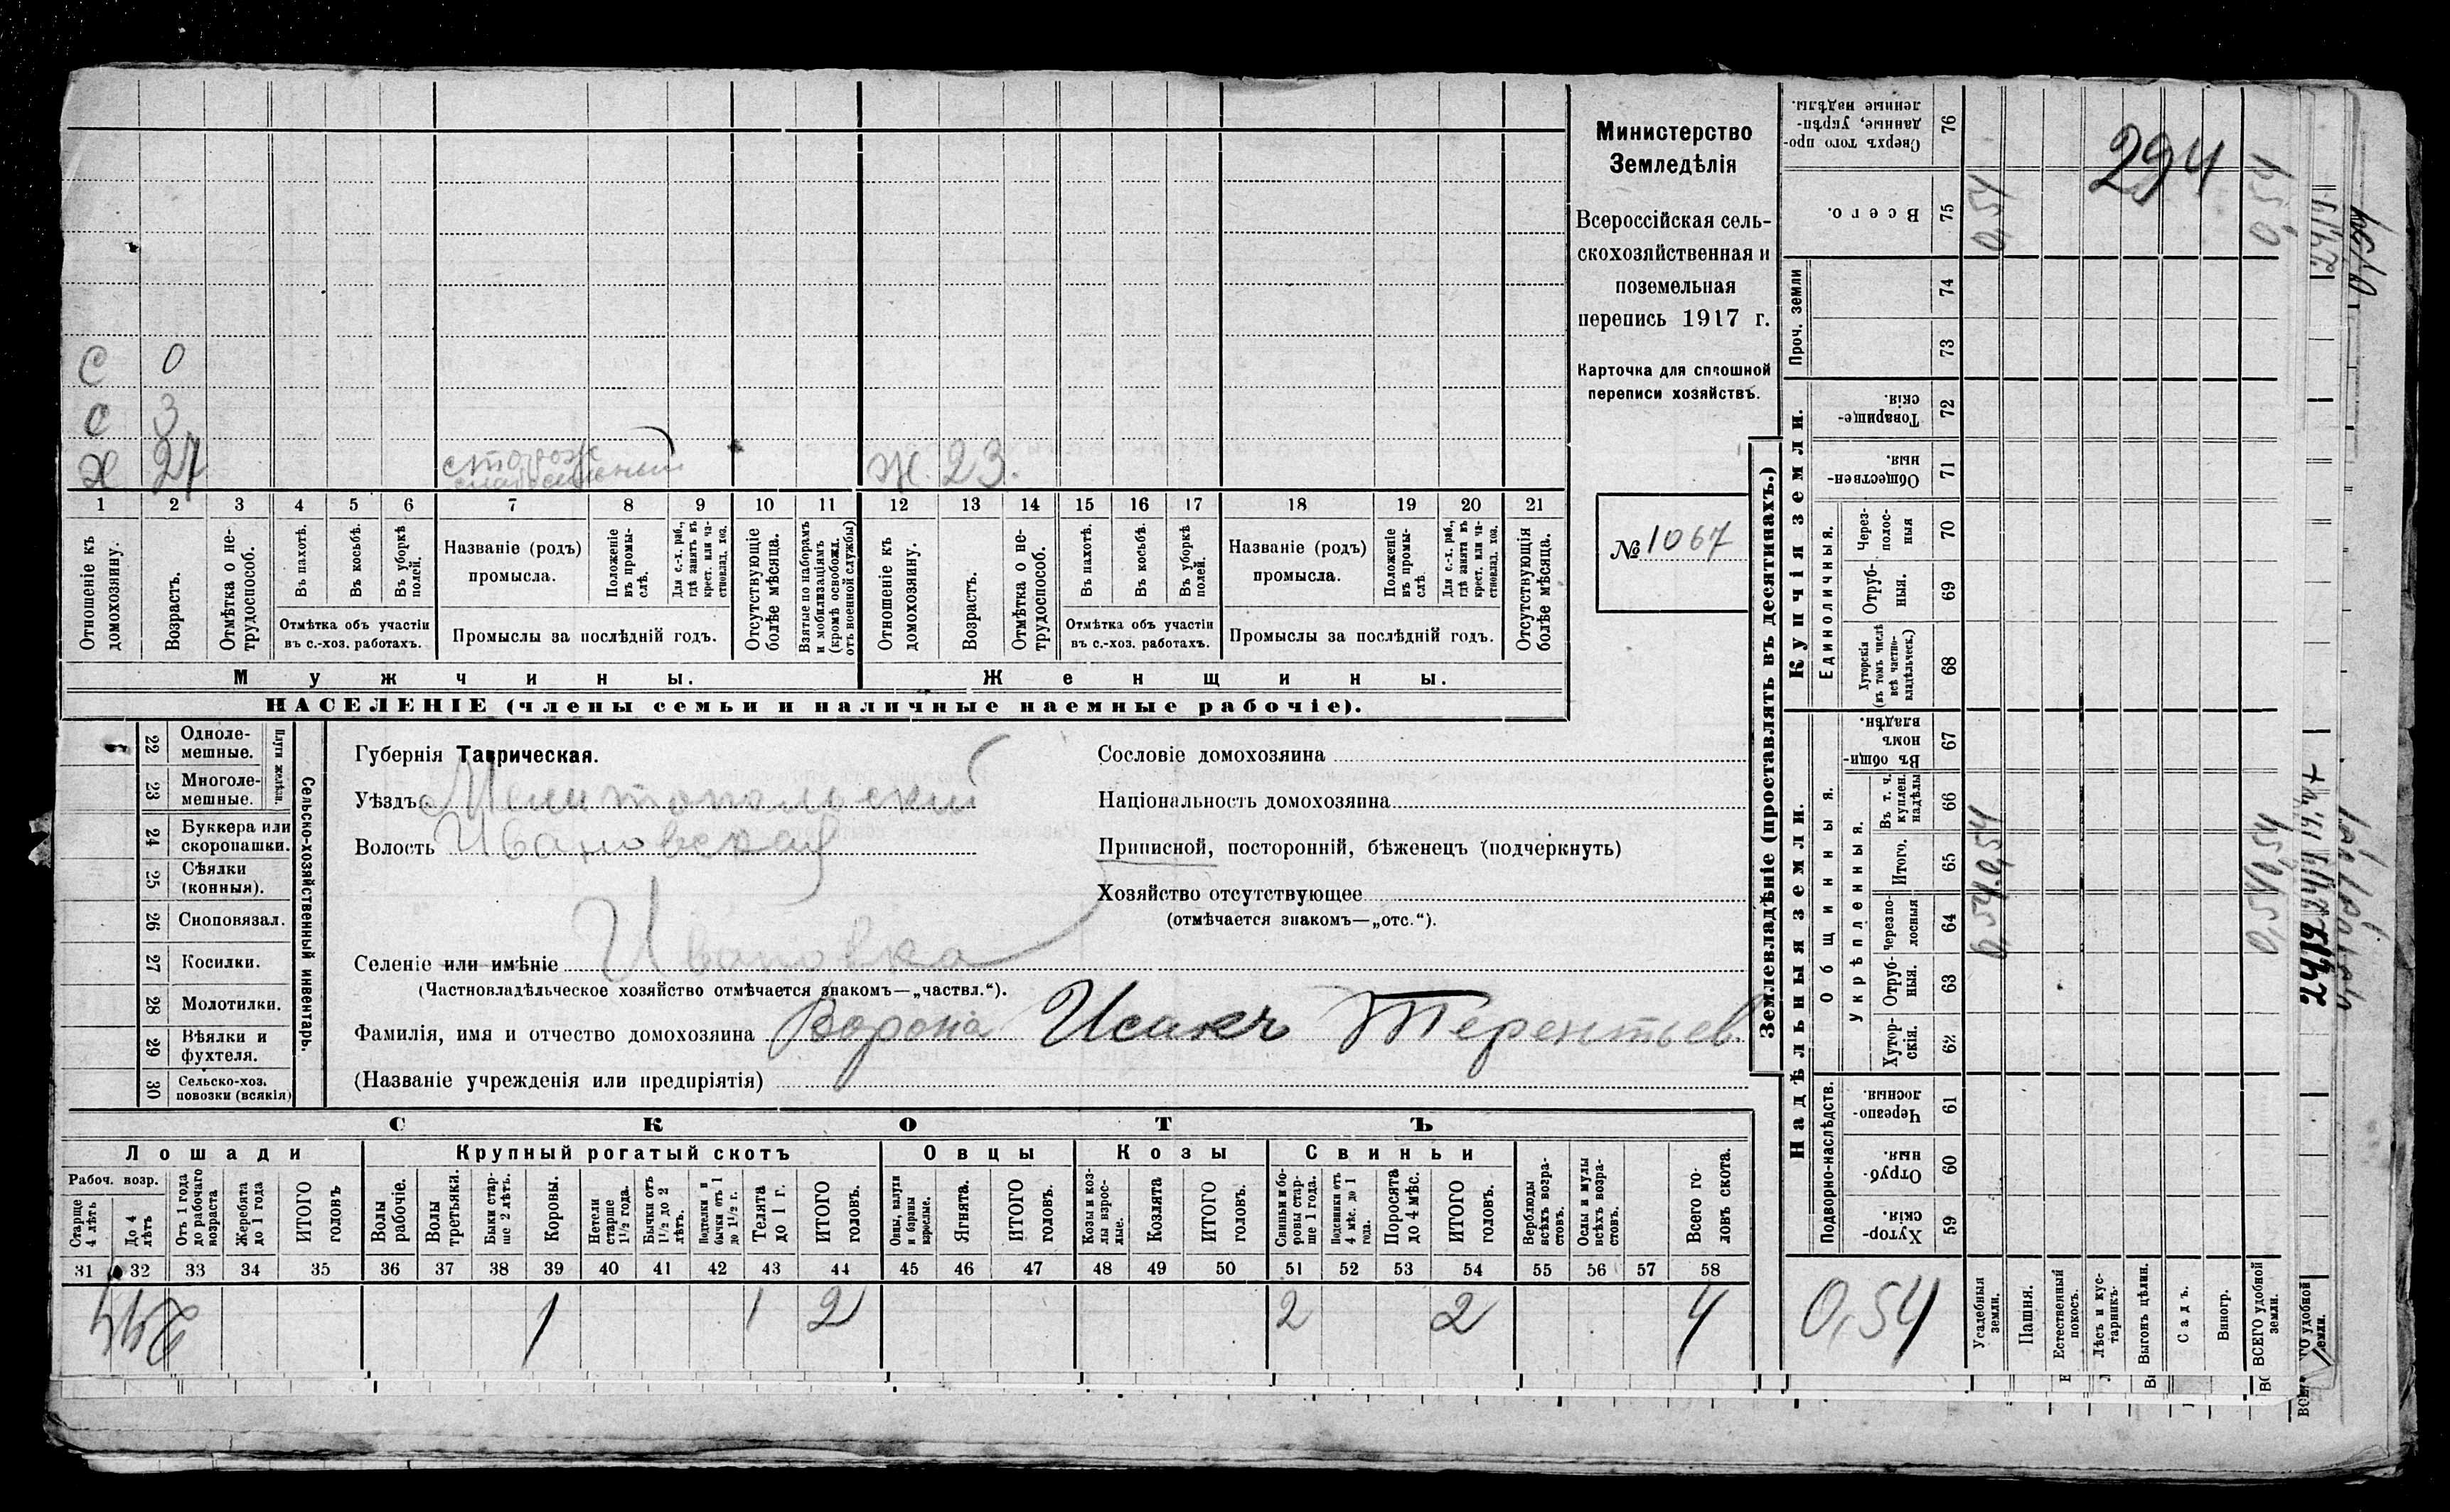 Министерство
Земледѣлія
Всероссійская сель-
скохозяйственная и
поземельная
перепись 1917 г.
Карточка для сплошной
переписи хозяйствъ.
№ 1067
С 0
С 3
Х 27 сторож Ж. 23.
1 2 3 4 5 6 7 8 9 10 11 12 13 14 15 16 17 18 19 20 21
Отношеніе къ домохозяину.
Возрастъ.
Отмѣтка о не-трудоспособ.
Въ пахотѣ.
Въ косьбѣ.
Въ уборкѣ полей.
Отмѣтка объ участіи
въ с.-хоз. работахъ.
Названіе (родъ)
промысла.
Положеніе въ промы-слѣ.
Для с.-х. раб., гдѣ занятъ въ крест. или ча-стновлад. хоз.
Промыслы за послѣдній годъ.
Отсутствующіе болѣе мѣсяца.
Взятые по наборамъ и мобилизаціямъ (кромѣ освобожд. отъ военной службы)
Отношеніе къ домохозяину.
Возрастъ.
Отмѣтка о не-трудоспособ.
Въ пахотѣ.
Въ косьбѣ.
Въ уборкѣ полей.
Отмѣтка объ участіи
въ с.-хоз. работахъ.
Названіе (родъ)
промысла.
Положеніе въ промы-слѣ.
Для с.-х. раб., гдѣ заняты въ крест. или ча-стновлад. хоз.
Промыслы за послѣдній годъ.
Отсутствующія болѣе мѣсяца.
Мужчины. Женщины.
НАСЕЛЕНІЕ (члены семьи и наличные наемные рабочіе).
22 Одноле-мешные.
23 Многоле-мешные.
Плуги желѣзн.
24 Буккера или скоропашки.
25 Сѣялки (конныя).
26 Сноповязал.
27 Косилки.
28 Молотилки.
29 Вѣялки и фухтеля.
30 Сельско-хоз. повозки (всякія)
Сельско-хозяйственный инвентарь.
Губернія Таврическая.
Уѣздъ Мелитопольский
Волость Ивановская
Селеніе или имѣніе Ивановка
(Частновладѣльческое хозяйство отмѣчается знакомъ—„частвл.“).
Фамилія, имя и отчество домохозяина Ворона Исакъ Терентьев.
(Названіе учрежденія или предпріятія)
Сословіе домохозяина
Національность домохозяина
Приписной, посторонній, бѣженецъ (подчеркнуть)
Хозяйство отсутствующее
(отмѣчается знакомъ—„отс.“).
СКОТЪ
Лошади Крупный рогатый скотъ Овцы Козы Свиньи
Рабоч. возр.
Старше 4 лѣтъ
До 4 лѣтъ
Отъ 1 года до рабочаго возраста
Жеребята до 1 года
ИТОГО головъ
Волы рабочіе.
Волы третьяки.
Быки стар-ше 2 лѣтъ.
Коровы.
Нетели старше 1½ года.
Бычки отъ 1½ до 2 лѣтъ.
Подтелки и бычки отъ 1 до 1½ г.
Телята до 1 г.
ИТОГО головъ.
Овцы, валухи и бараны взрослые.
Ягнята.
ИТОГО головъ.
Козы и коз-лы взрос-лые.
Козлята
ИТОГО головъ.
Свиньи и бо-ровы стар-ше 1 года.
Подсвинки отъ 4 мѣс. до 1 года.
Поросята до 4 мѣс.
ИТОГО головъ.
Верблюды всѣхъ возра-стовъ.
Ослы и мулы всѣхъ возра-стовъ.
Всего го-ловъ скота.
31 32 33 34 35 36 37 38 39 40 41 42 43 44 45 46 47 48 49 50 51 52 53 54 55 56 57 58
294 1 1 2 2 2 4
Землевладѣніе (проставлять въ десятинахъ.)
Надѣльныя земли. Купчія земли. Проч. земли
Подворно-наслѣдств.
Общинныя.
Укрѣпленныя.
Единоличныя.
59 Хутор-скія.
60 Отруб-ныя.
61 Черезпо-лосныя.
62 Хутор-скія.
63 Отруб-ныя.
64 Черезпо-лосныя
65 Итого.
66 Въ т. ч. куплен. надѣлы
67 Въ общин-номъ владѣн.
68 Хуторскія (въ томъ числѣ всѣ частно-владѣльческ.)
69 Отруб-ныя.
70 Через-полос-ныя
71 Обществен-ныя.
72 Товарище-скія.
73
74
75 Всего.
76 Сверхъ того про-данные, укрѣп-ленные надѣлы.
294
0,54
Усадебныя земли. 0,54 0,54 0,54
Пашня.
Естественный покосъ.
Лѣсъ и кус-тарникъ.
Выгонъ цѣлин.
Садъ.
Виногр.
ВСЕГО удобной земли. 0,54 0,54 0,54